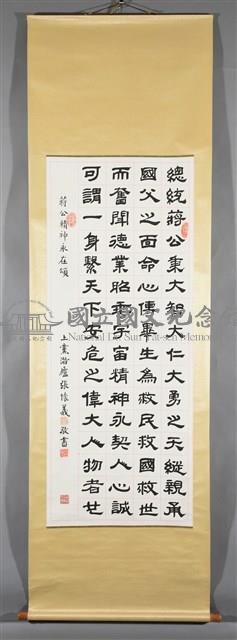 總統蔣公秉大智大仁大勇之天縱親承
國父之面命心傳畢生為救民救國救世
而奮鬥德業昭垂宇宙精神永契人心誠
可謂一身繫天下安危之偉大人物者也
蔣公精神永在頌
上黨潛廬張懷義敬書
國立國父紀念
National Dr. Sun Yat-sen Memor